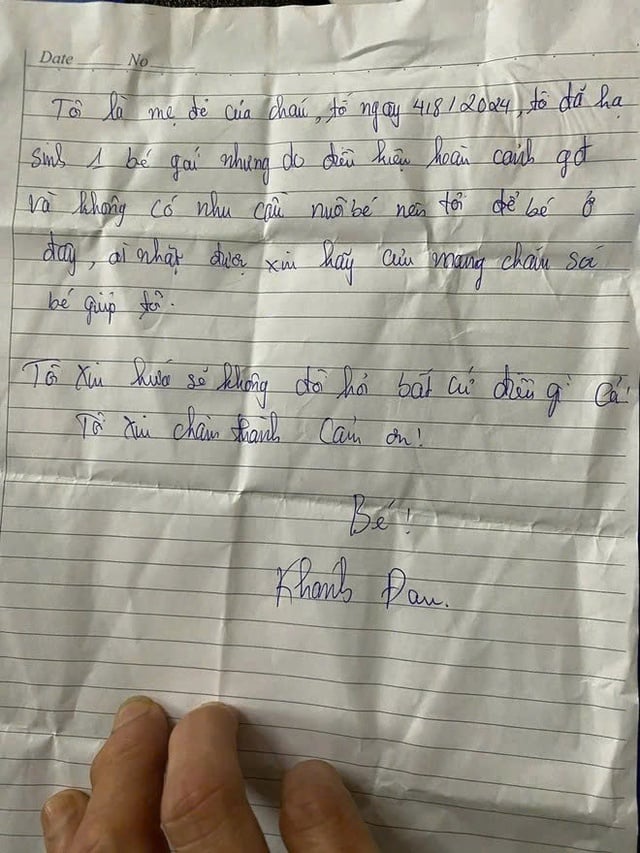 Date No
Tôi là mẹ đẻ của cháu, tối ngày 4/8/2024, tôi đã hạ
sinh 1 bé gái nhưng do điều kiện hoàn cảnh gđ
và không có nhu cầu nuôi bé nên tôi để bé ở
đây, ai nhặt được xin hãy cưu mang cháu số
bé giúp tôi.
Tôi xin hứa sẽ không đòi hỏi bất cứ điều gì cả!
Tôi xin chân thành cảm ơn!
Bé!
Khánh Đan.